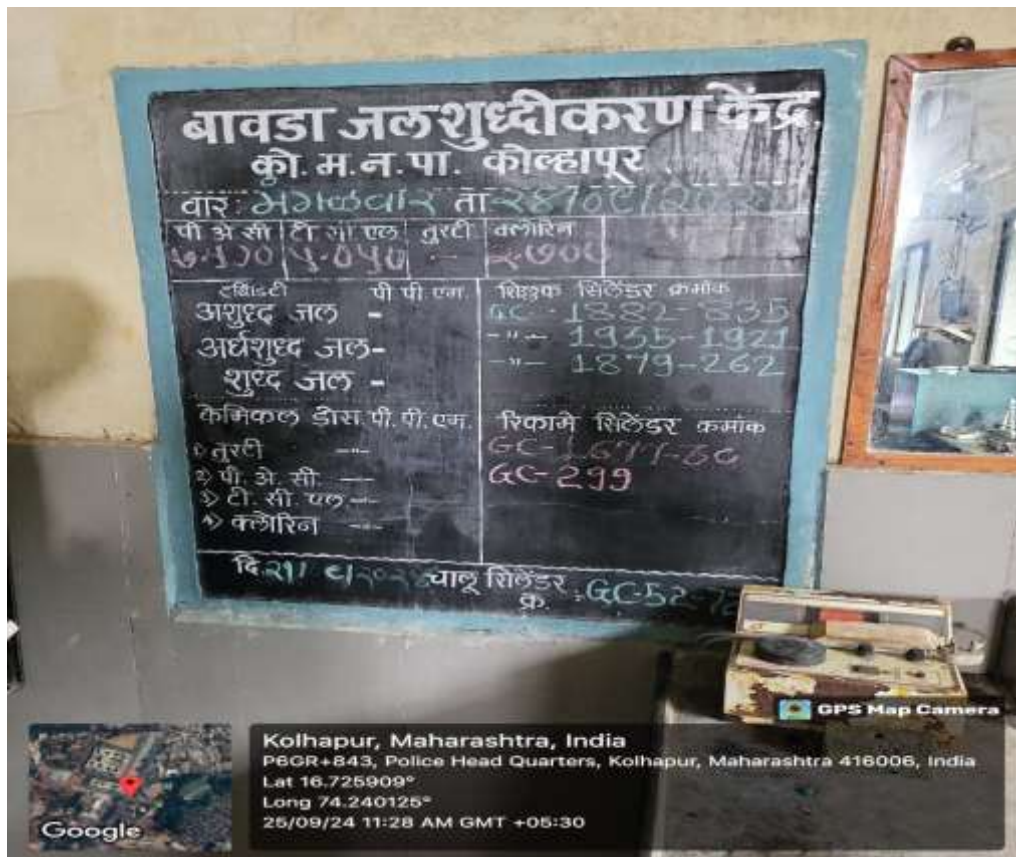 बावडा जलशुध्दीकरण केंद्र.
को. म. न. पा. कोल्हापूर
वार: मंगळवार ता २४/०९/२०२४
पी अे सी टी सी एल तुरटी क्लोरिन
टर्बिडिटी पी पी एम.
अशुध्द जल -
अर्धशुध्द जल-
शुध्द जल -
शिल्लक सिलेंडर क्रमांक
GC - 1882 - 835
-"- 1935-1921
-"- 1879-262
केमिकल डोस पी. पी. एम.
१) तुरटी -"-
२) पी. अे. सी. -"-
३) टी. सी. एल -"-
४) क्लोरिन -"-
रिकामे सिलेंडर क्रमांक
GC-299
दि २१/९/२०२४ चालू सिलेंडर क्र. : GC-52-
GPS Map Camera
Google
Kolhapur, Maharashtra, India
P6GR+843, Police Head Quarters, Kolhapur, Maharashtra 416006, India
Lat 16.725909°
Long 74.240125°
25/09/24 11:28 AM GMT +05:30